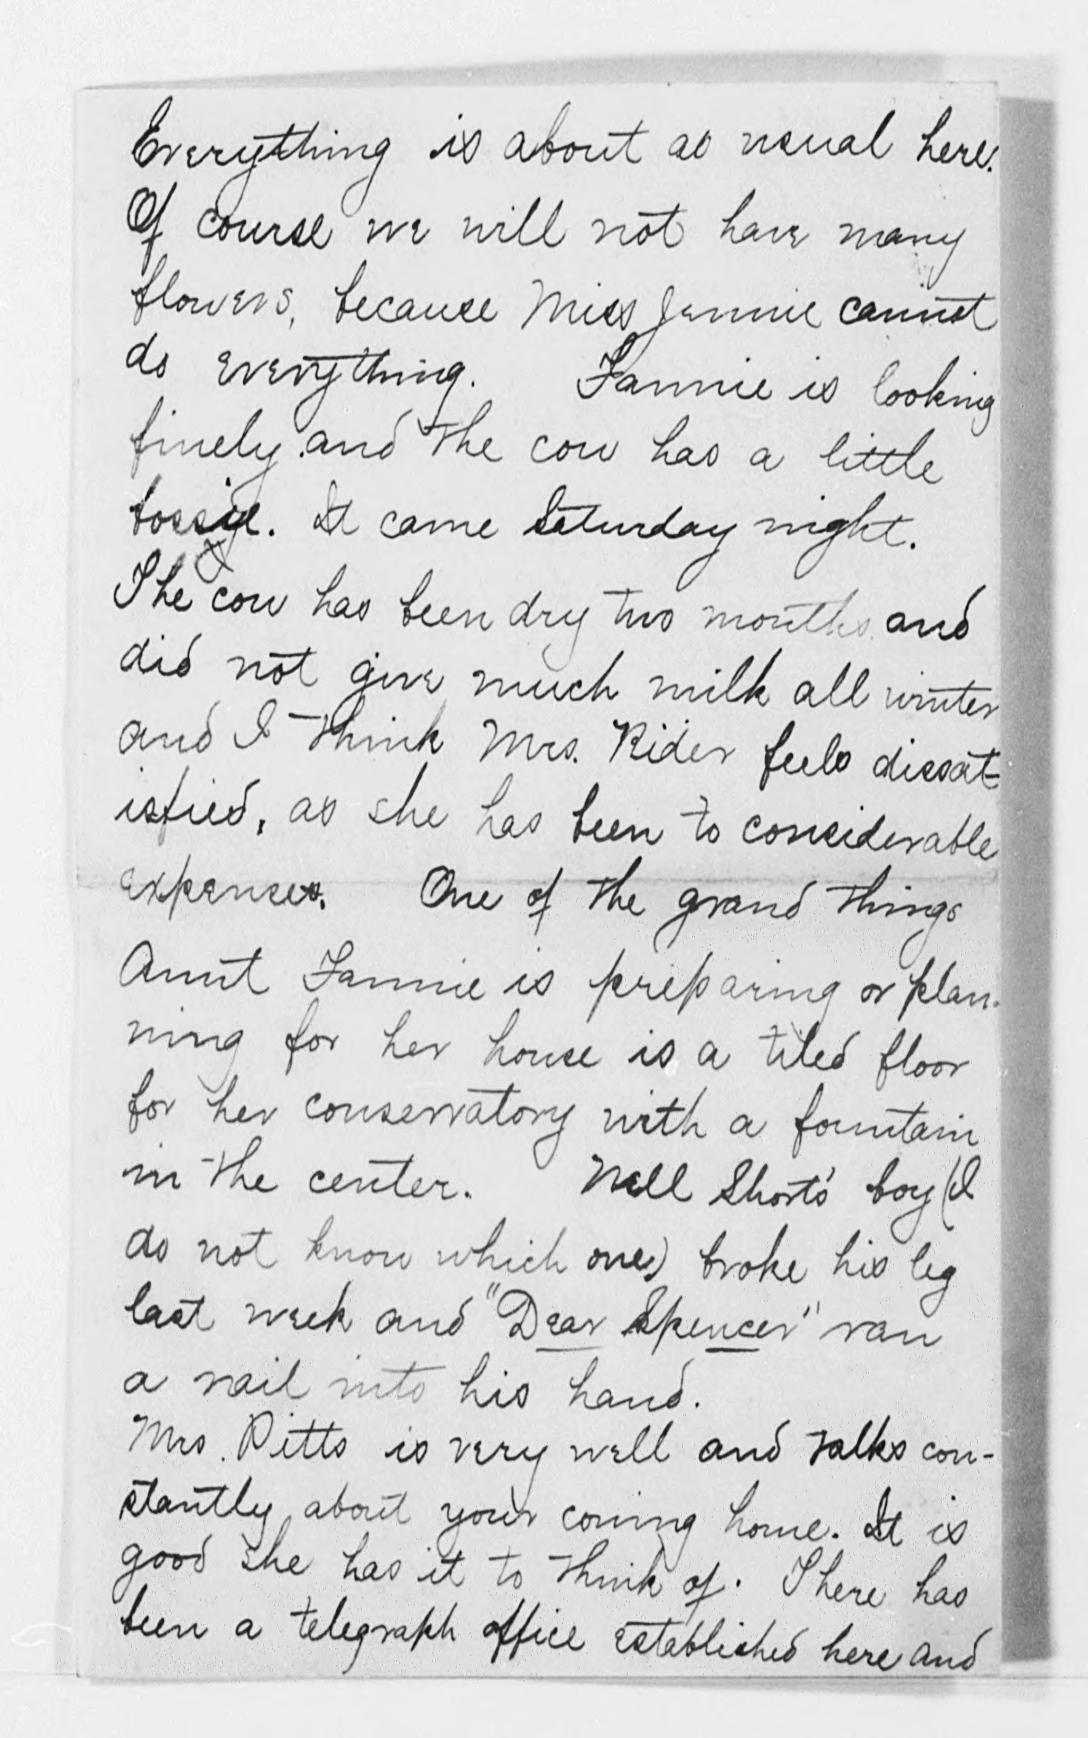 Everything is about as usual here.
Of course we will not have many
flowers, because Miss Jennie cannot
do everything. Fannie is looking
finely and the cow has a little
bossie. It came Saturday night.
The cow has been dry two months and
did not give much milk all winter
and I think Mrs. Rider feels dissat-
isfied, as she has been to considerable
expenses. One of the grand things
Aunt Fannie is preparing or plan-
ning for her house is a tiled floor
for her conservatory with a fountain
in the center. Nell Short's boy (I
do not know which one) broke his leg
last week and "Dear Spencer" ran
a nail into his hand.
Mrs. Pitts is very well and talks con-
stantly about your coming home. It is
good she has it to think of. There has
been a telegraph office established here and